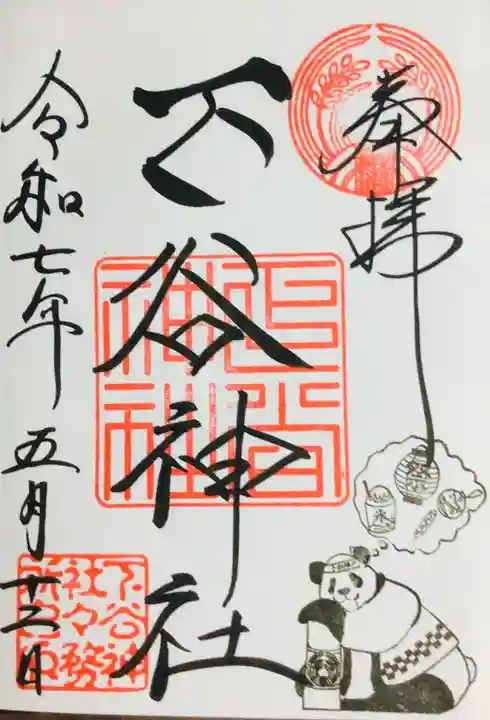 奉拝
下谷神社
令和七年五月十二日
下谷神
社々務
所之印
氷